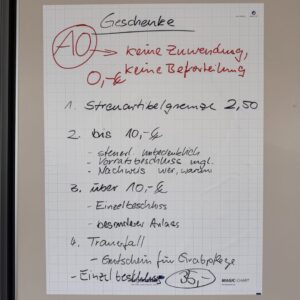 Geschenke
AO → keine Zuwendung,
0,-€ keine Bevorteilung
1. Streuartikelgrenze 2,50
2. bis 10,-€
- steuerl. unbedenklich
- Vorratsbeschluss mgl.
- Nachweis wer, wann
3. über 10,-€
- Einzelbeschluss
- besonderer Anlass
4. Trauerfall
- Gutschein für Grabpflege
- Einzelbeschluss 35,-
MAGIC-CHART